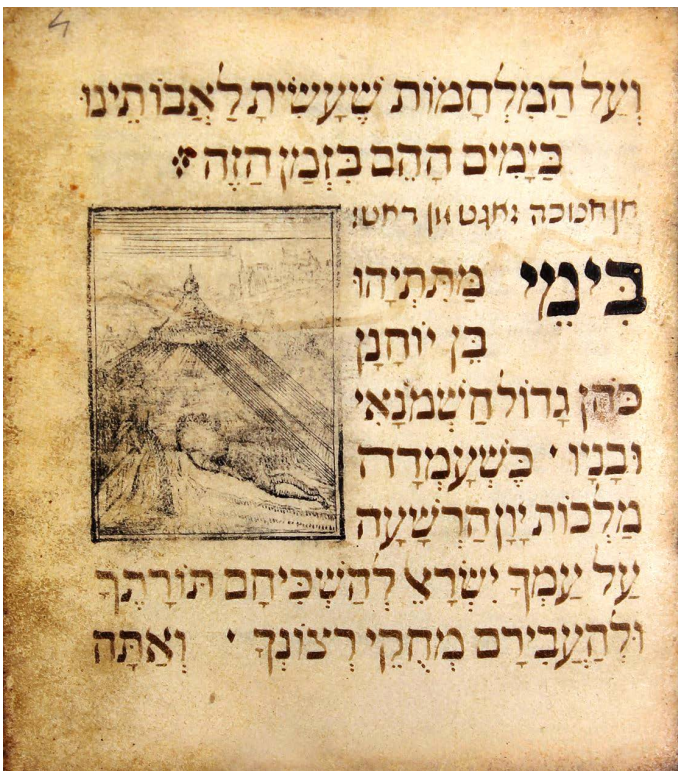 וְעַל הַמִלְחָמוֹת שֶׁעָשִׂיתָ לַאֲבוֹתֵינוּ
בַּיָמִים הָהֵם בִּזְמַן הַזֶה
חנוכה זאגט מן דאש:
בִּימֵי מַתִּתְיָהוּ
בֶּן יוֹחָנָן
כֹּהֵן גָדוֹל חַשְׁמֹנָאִי
וּבָנָיו ' כְּשֶׁעָמְדָה
מַלְכוּת יָוָן הָרְשָׁעָה
עַל עַמְךָ יִשְׂרָאֵל לְהַשְׁכִּיחָם תּוֹרָתֶךָ
וּלְהַעֲבִירָם מֵחֻקֵי רְצוֹנֶךָ ' וְאַתָּה